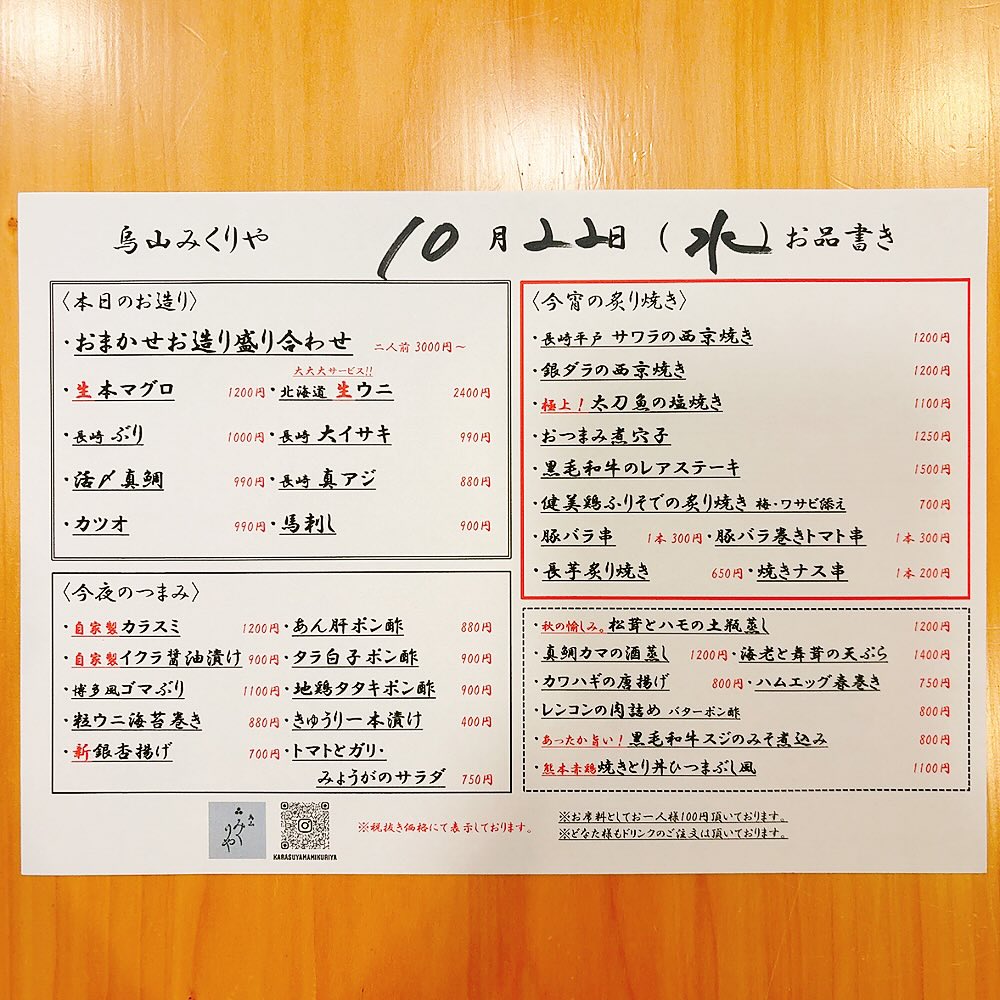 烏山みくりや 10月22日(水)お品書き
〈本日のお造り〉
・おまかせお造り盛り合わせ 二人前 3000円～
大大大サービス!!
・生本マグロ 1200円・北海道 生ウニ 2400円
・長崎 ぶり 1000円・長崎 大イサキ 990円
・活〆真鯛 990円・長崎 真アジ 880円
・カツオ 990円・馬刺し 900円
〈今夜のつまみ〉
・自家製カラスミ 1200円・あん肝ポン酢 880円
・自家製イクラ醤油漬け 900円・タラ白子ポン酢 900円
・博多風ゴマぶり 1100円・地鶏タタキポン酢 900円
・粒ウニ海苔巻き 880円・きゅうり一本漬け 400円
・新銀杏揚げ 700円・トマトとガリ・
みょうがのサラダ 750円
〈今宵の炙り焼き〉
・長崎平戸 サワラの西京焼き 1200円
・銀ダラの西京焼き 1200円
・極上！太刀魚の塩焼き 1100円
・おつまみ煮穴子 1250円
・黒毛和牛のレアステーキ 1500円
・健美鶏ふりそでの炙り焼き 梅・ワサビ添え 700円
・豚バラ串 1本 300円・豚バラ巻きトマト串 1本 300円
・長芋炙り焼き 650円・焼きナス串 1本 200円
・秋の愉しみ。松茸とハモの土瓶蒸し 1200円
・真鯛カマの酒蒸し 1200円・海老と舞茸の天ぷら 1400円
・カワハギの唐揚げ 800円・ハムエッグ春巻き 750円
・レンコンの肉詰め バターポン酢 800円
・あったか旨い！黒毛和牛スジのみそ煮込み 800円
・熊本赤鶏焼きとり丼ひつまぶし風 1100円
みくりや
KARASUYAMAMIKURIYA
※税抜き価格にて表示しております。
※お席料としてお一人様100円頂いております。
※どなた様もドリンクのご注文は頂いております。